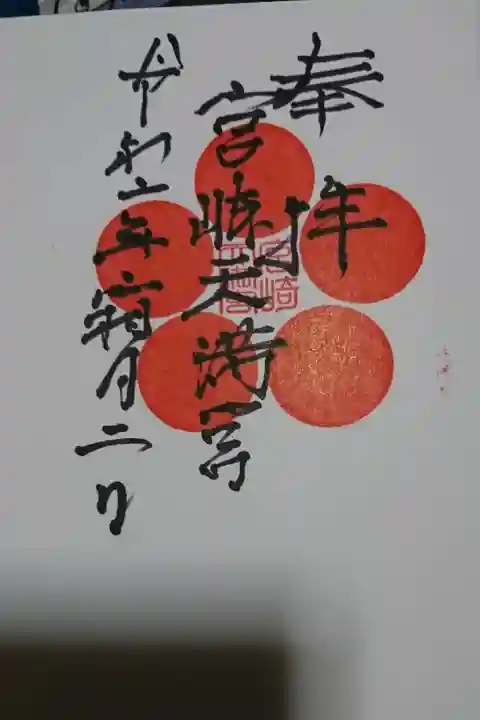 奉拝
宮崎天満宮
令和二年霜月二日